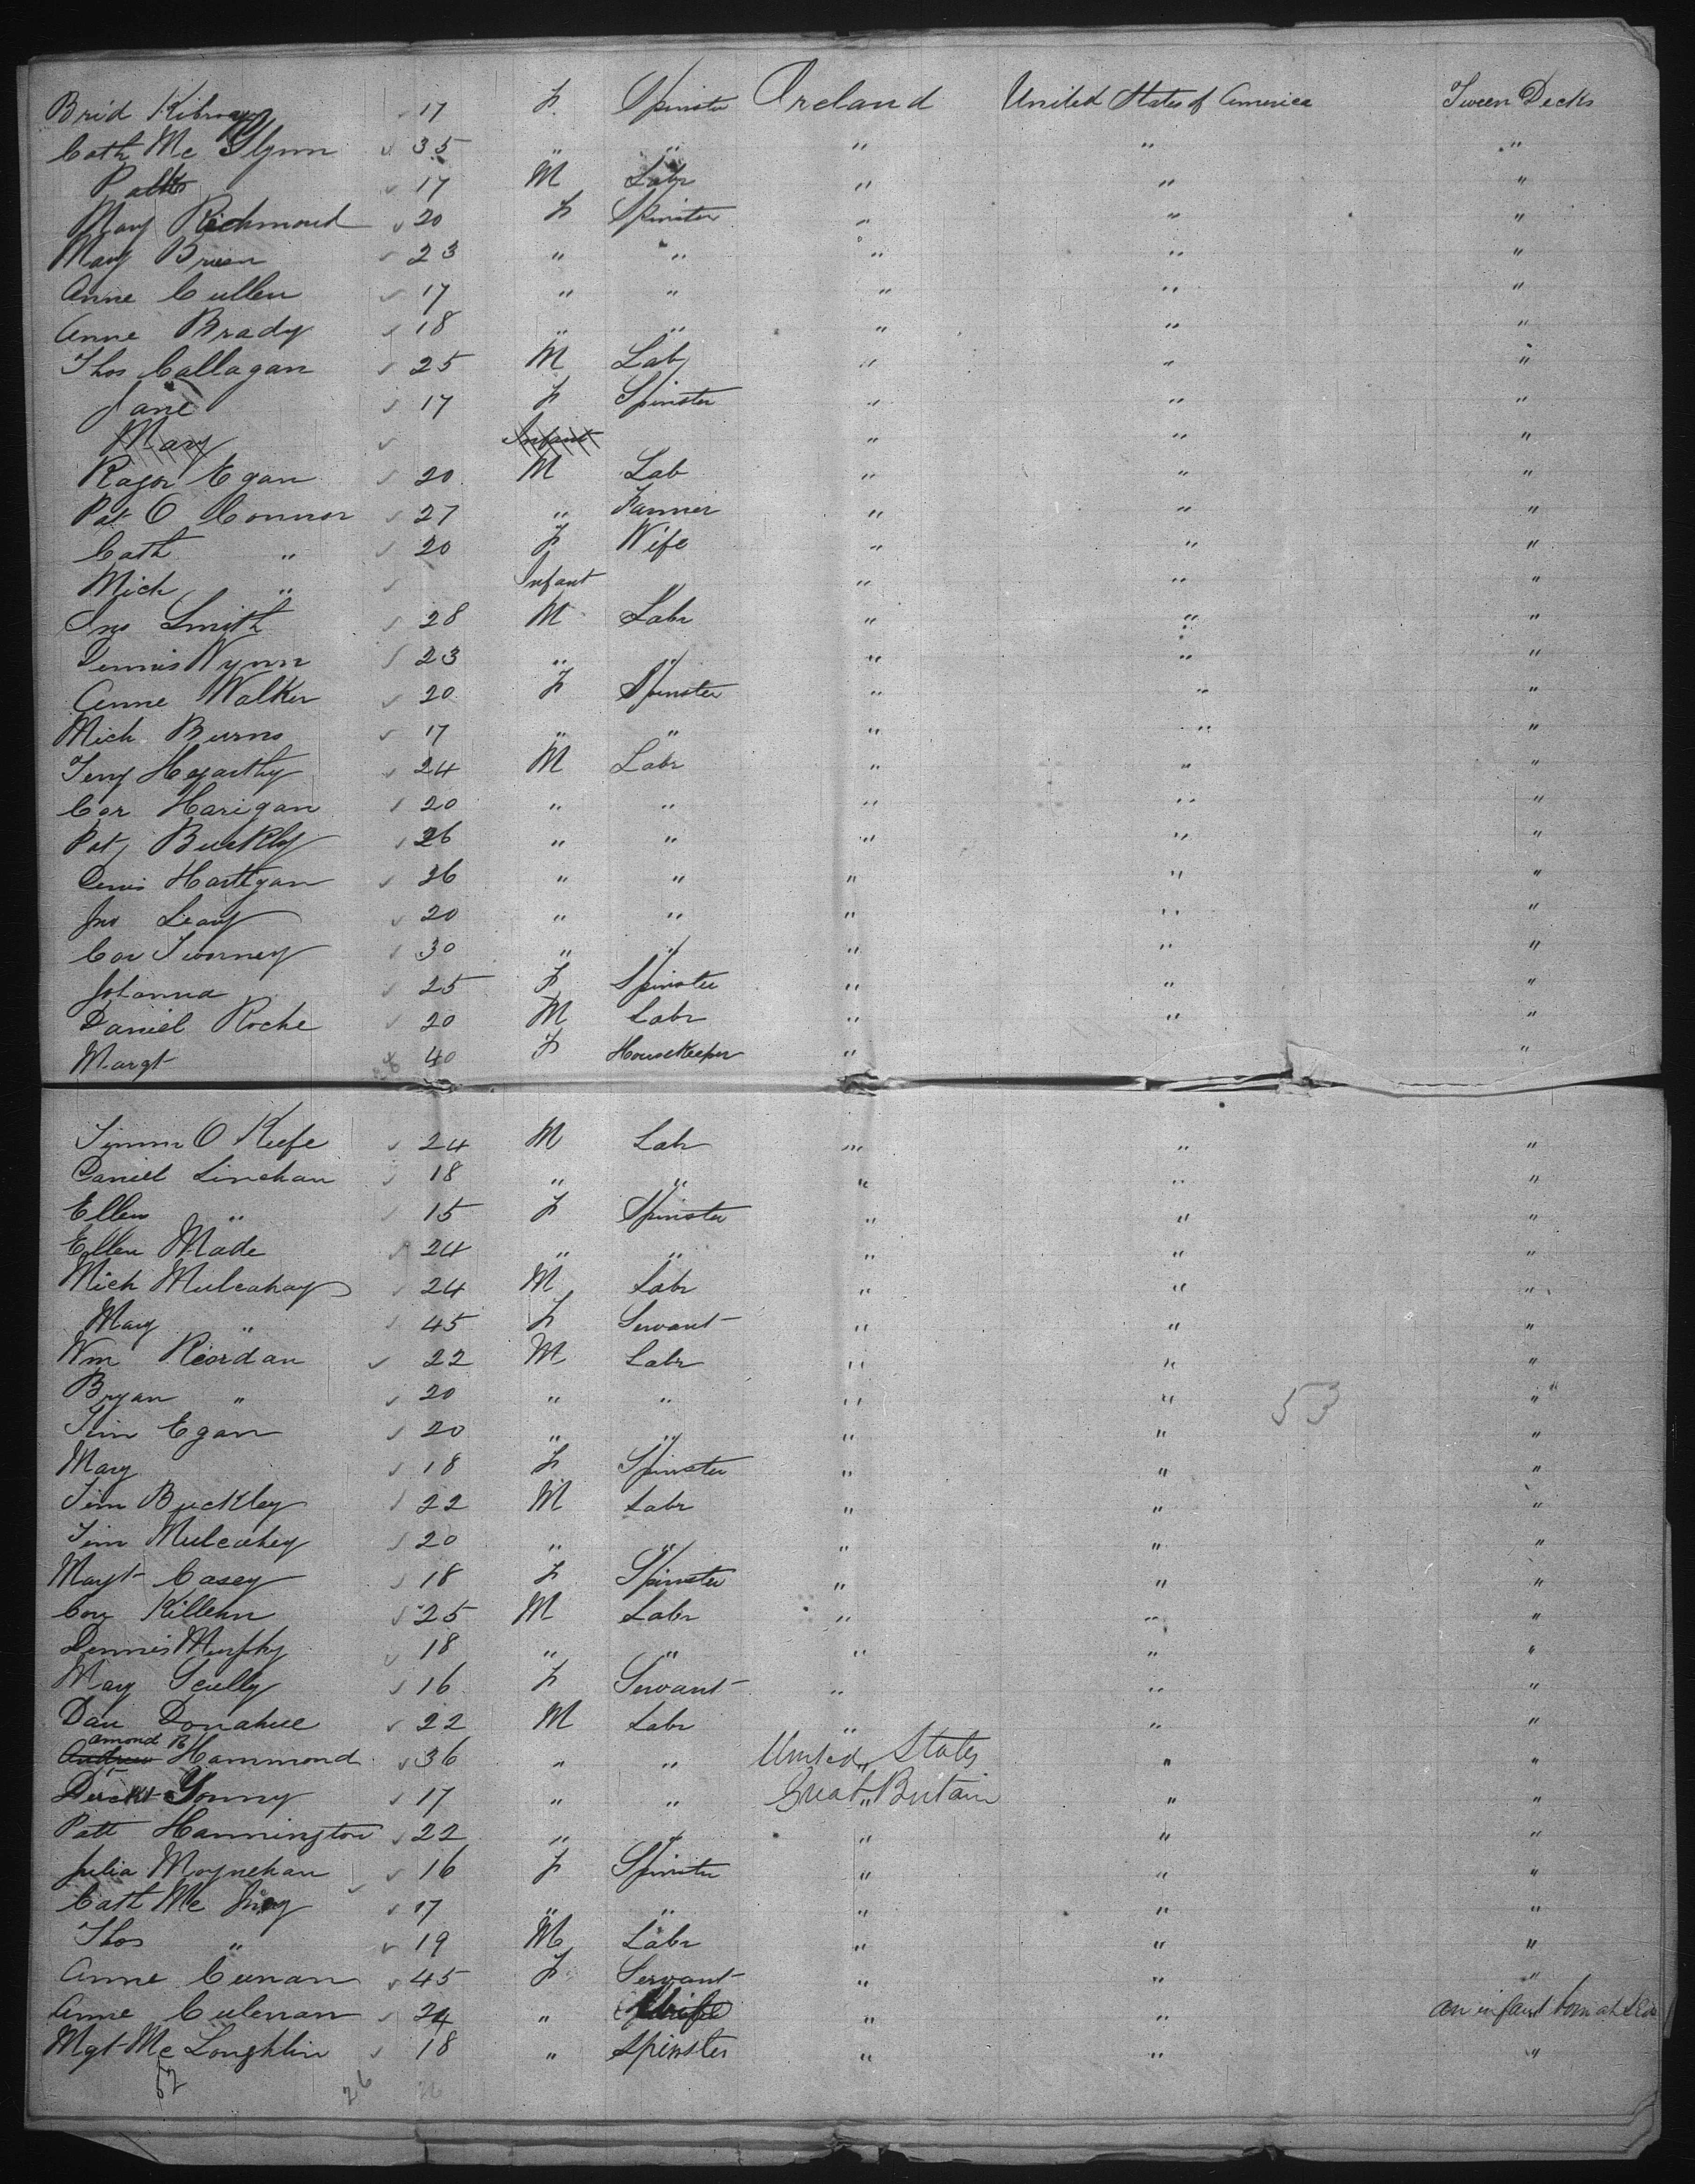 Brid Kilroy 17 F. Spinster Ireland United States of America Tween Decks
Cath Mc Glynn 35 " " " " "
Patk 17 M Labr " " "
Mary Richmond 20 F Spinster " " "
Mary Brien 23 " " " " "
Anne Cullen 17 " " " " "
Anne Brady 18 " " " " "
Thos Callagan 25 M Lab " " "
Jane 17 F Spinster " " "
Mary Infant " " "
Roger Egan 20 M Lab " " "
Pat O Connor 27 " Farmer " " "
Cath " 20 F Wife " " "
Mich " Infant " " "
Jno Smith 28 M Labr " " "
Dennis Wynn 23 " " " " "
Anne Walker 20 F Spinster " " "
Mich Burns 17 " " " " "
Terry Hegarthy 24 M Labr " " "
Cor Harigan 20 " " " " "
Pat Buckly 26 " " " " "
Denis Hartigan 26 " " " " "
Jno Leary 20 " " " " "
Cor Twomey 30 " " " " "
Johanna 25 F Spinster " " "
Daniel Roche 20 M Labr " " "
Margt 40 F HouseKeeper " "
Timm O Keefe 24 M Labr " " "
Daniel Linehan 18 " " " " "
Ellen " 15 F Spinster " " "
Ellen Made 24 " " " " "
Mich Mulcahay 24 M Labr " " "
Mary " 45 F Servant " " "
Wm Reordan 22 M Labr " " "
Bryan " 20 " " " " 53 "
Tim Egan 20 " " " " "
Mary 18 F Spinster " " "
Tim Buckley 22 M Labr " " "
Tim Mulcahey 20 " " " " "
Margt Casey 18 F Spinster " " "
Cor Killehn 25 M Labr " " "
Dennis Murphy 18 " " " " "
Mary Scully 16 F Servant " " "
Dan Donahue 22 M Labr " " "
amond R
Andrew Hammond 36 " " United States " "
Yonny 17 " " Great Britain " "
Patt Hannington 22 " " " " "
Julia Moynehan 16 F Spinster " " "
Cath Mc 17 " " " " "
Thos " 19 M Labr " " "
Anne Cunan 45 F Servant " " "
Anne Culenan 24 " Wife " " an infant born at sea
Mgt Mc Loughlin 18 " Spinster " " "
52 26 26